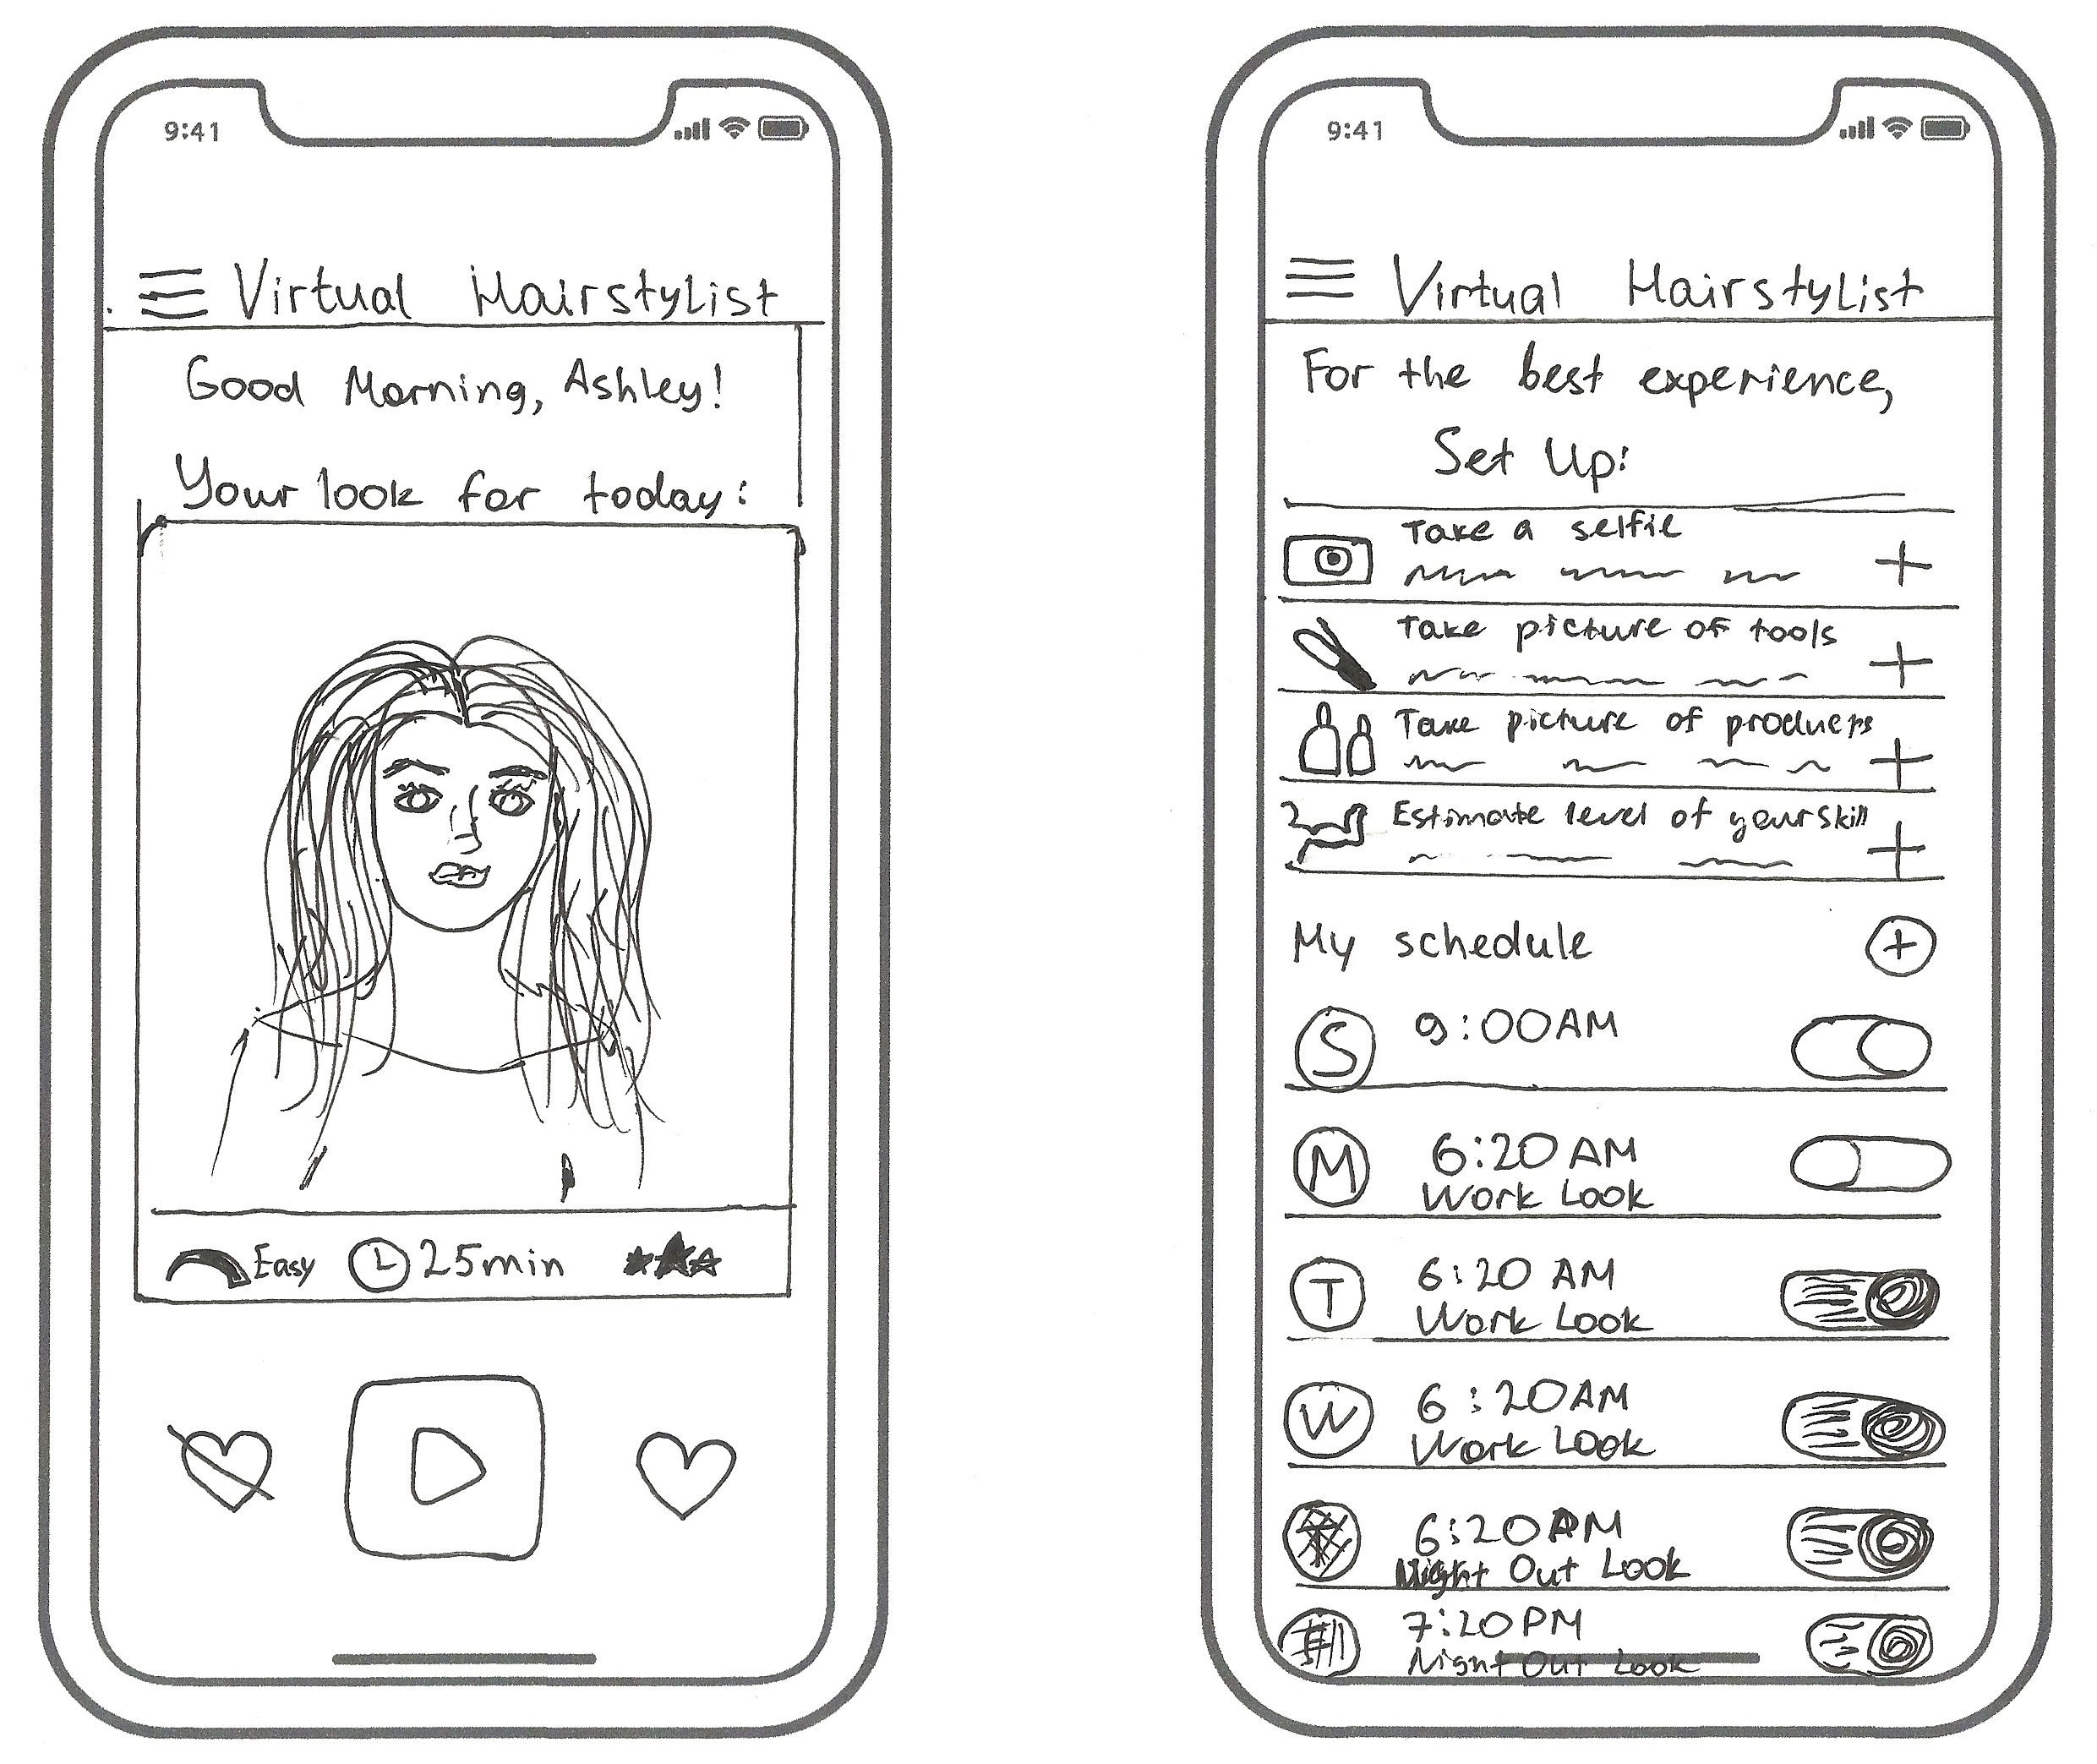 9:41
Virtual Hairstylist
Good Morning, Ashley!
Your look for today:
Easy 25min
9:41
Virtual Hairstylist
For the best experience,
Set Up:
Take a selfie
Take picture of tools
Take picture of products
Estimate level of your skill
My schedule
S 9:00AM
M 6:20 AM
Work Look
T 6:20 AM
Work Look
W 6:20AM
Work Look
T 6:20
Night Out Look
7:20PM
Night Out Look